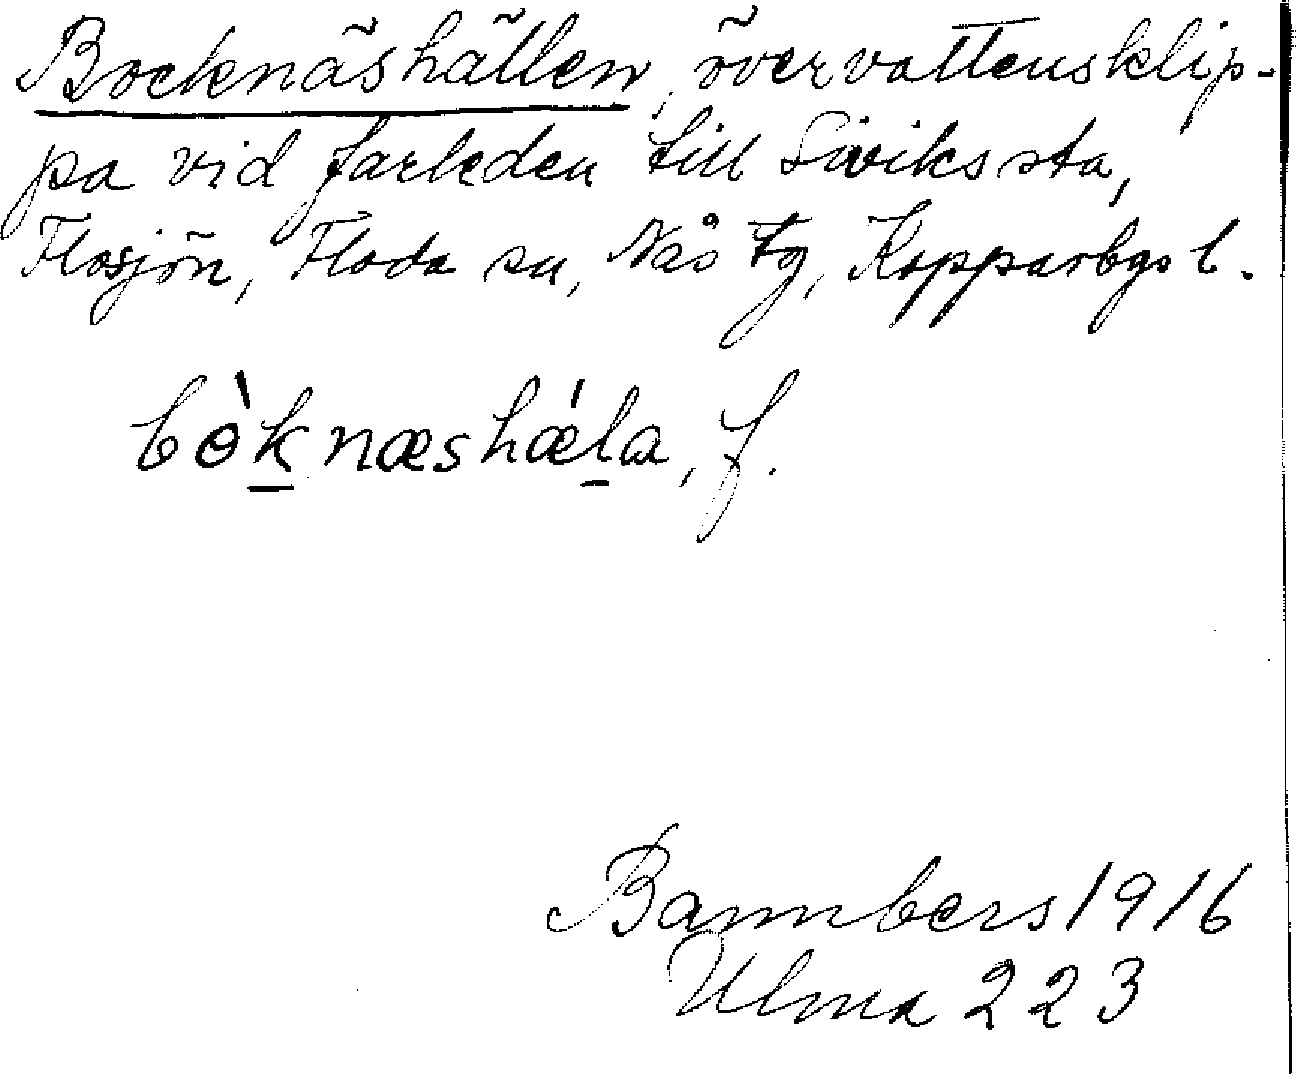 Bocknäshällen, övervattensklip-
pa vid farleden till Siviks sta,
Flosjön, Floda sn, Nås tg, Kopparbgs l.
bɵ̀k̲næshǽl̲a, f.
Bannbers 1916
Ulma 223